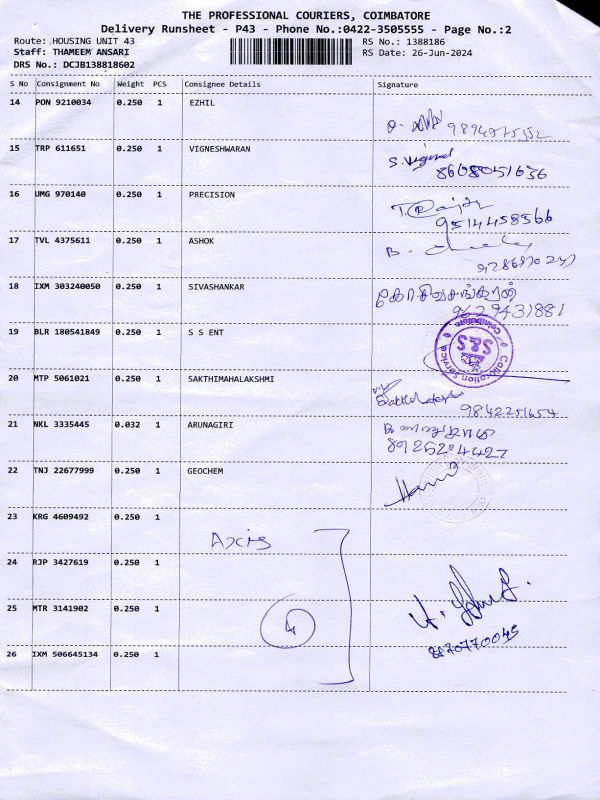 THE PROFESSIONAL COURIERS, COIMBATORE
Delivery Runsheet - P43 - Phone No.:0422-3505555 - Page No.:2
Route: HOUSING UNIT 43 RS No.: 1388186
Staff: THAMEEM ANSARI RS Date: 26-Jun-2024
DRS No.: DCJB138818602
S No Consignment No Weight PCS Consignee Details Signature
14 PON 9210034 0.250 1 EZHIL
15 TRP 611651 0.250 1 VIGNESHWARAN
8608051636
16 UMG 970140 0.250 1 PRECISION
9514458566
17 TVL 4375611 0.250 1 ASHOK
18 IXM 303240050 0.250 1 SIVASHANKAR
9629431881
19 BLR 180541849 0.250 1 S S ENT
20 MTP 5061021 0.250 1 SAKTHIMAHALAKSHMI
9842251654
21 NKL 3335445 0.032 1 ARUNAGIRI
22 TNJ 22677999 0.250 1 GEOCHEM
23 KRG 4609492 0.250 1
Axis
24 RJP 3427619 0.250 1
25 MTR 3141902 0.250 1
4
26 IXM 506645134 0.250 1